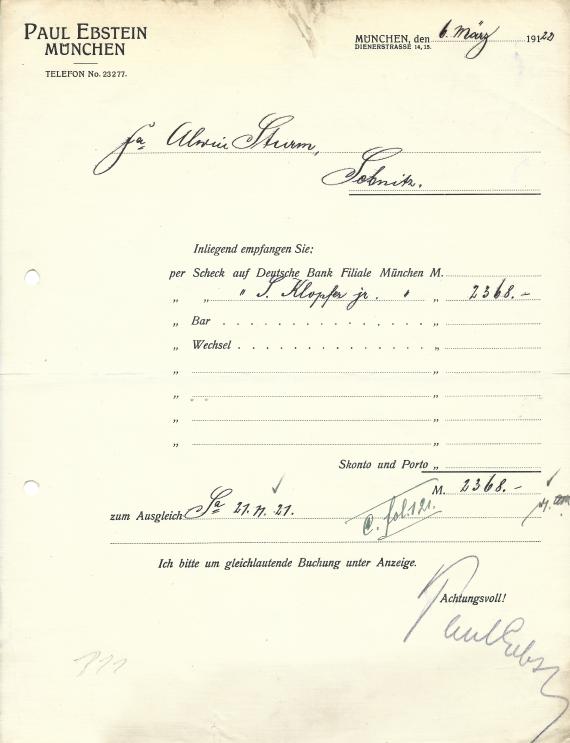 PAUL EBSTEIN
MÜNCHEN
TELEFON No. 23277.
MÜNCHEN, den 6. März 1920
DIENERSTRASSE 14, 15.
Fa Alwin Sturm,
Sebnitz.
Inliegend empfangen Sie:
per Scheck auf Deutsche Bank Filiale München M.
„ „ " S. Klopfer jr. " „ 2368.-
„ Bar . . . . . . . . . . . . . . „
„ Wechsel . . . . . . . . . . . . . „
„ „
„ „
„ „
„ „
Skonto und Porto „
M. 2368.-
zum Ausgleich Fa 21. 21.
C. fol. 121.
Ich bitte um gleichlautende Buchung unter Anzeige.
Achtungsvoll!
Paul Ebstein